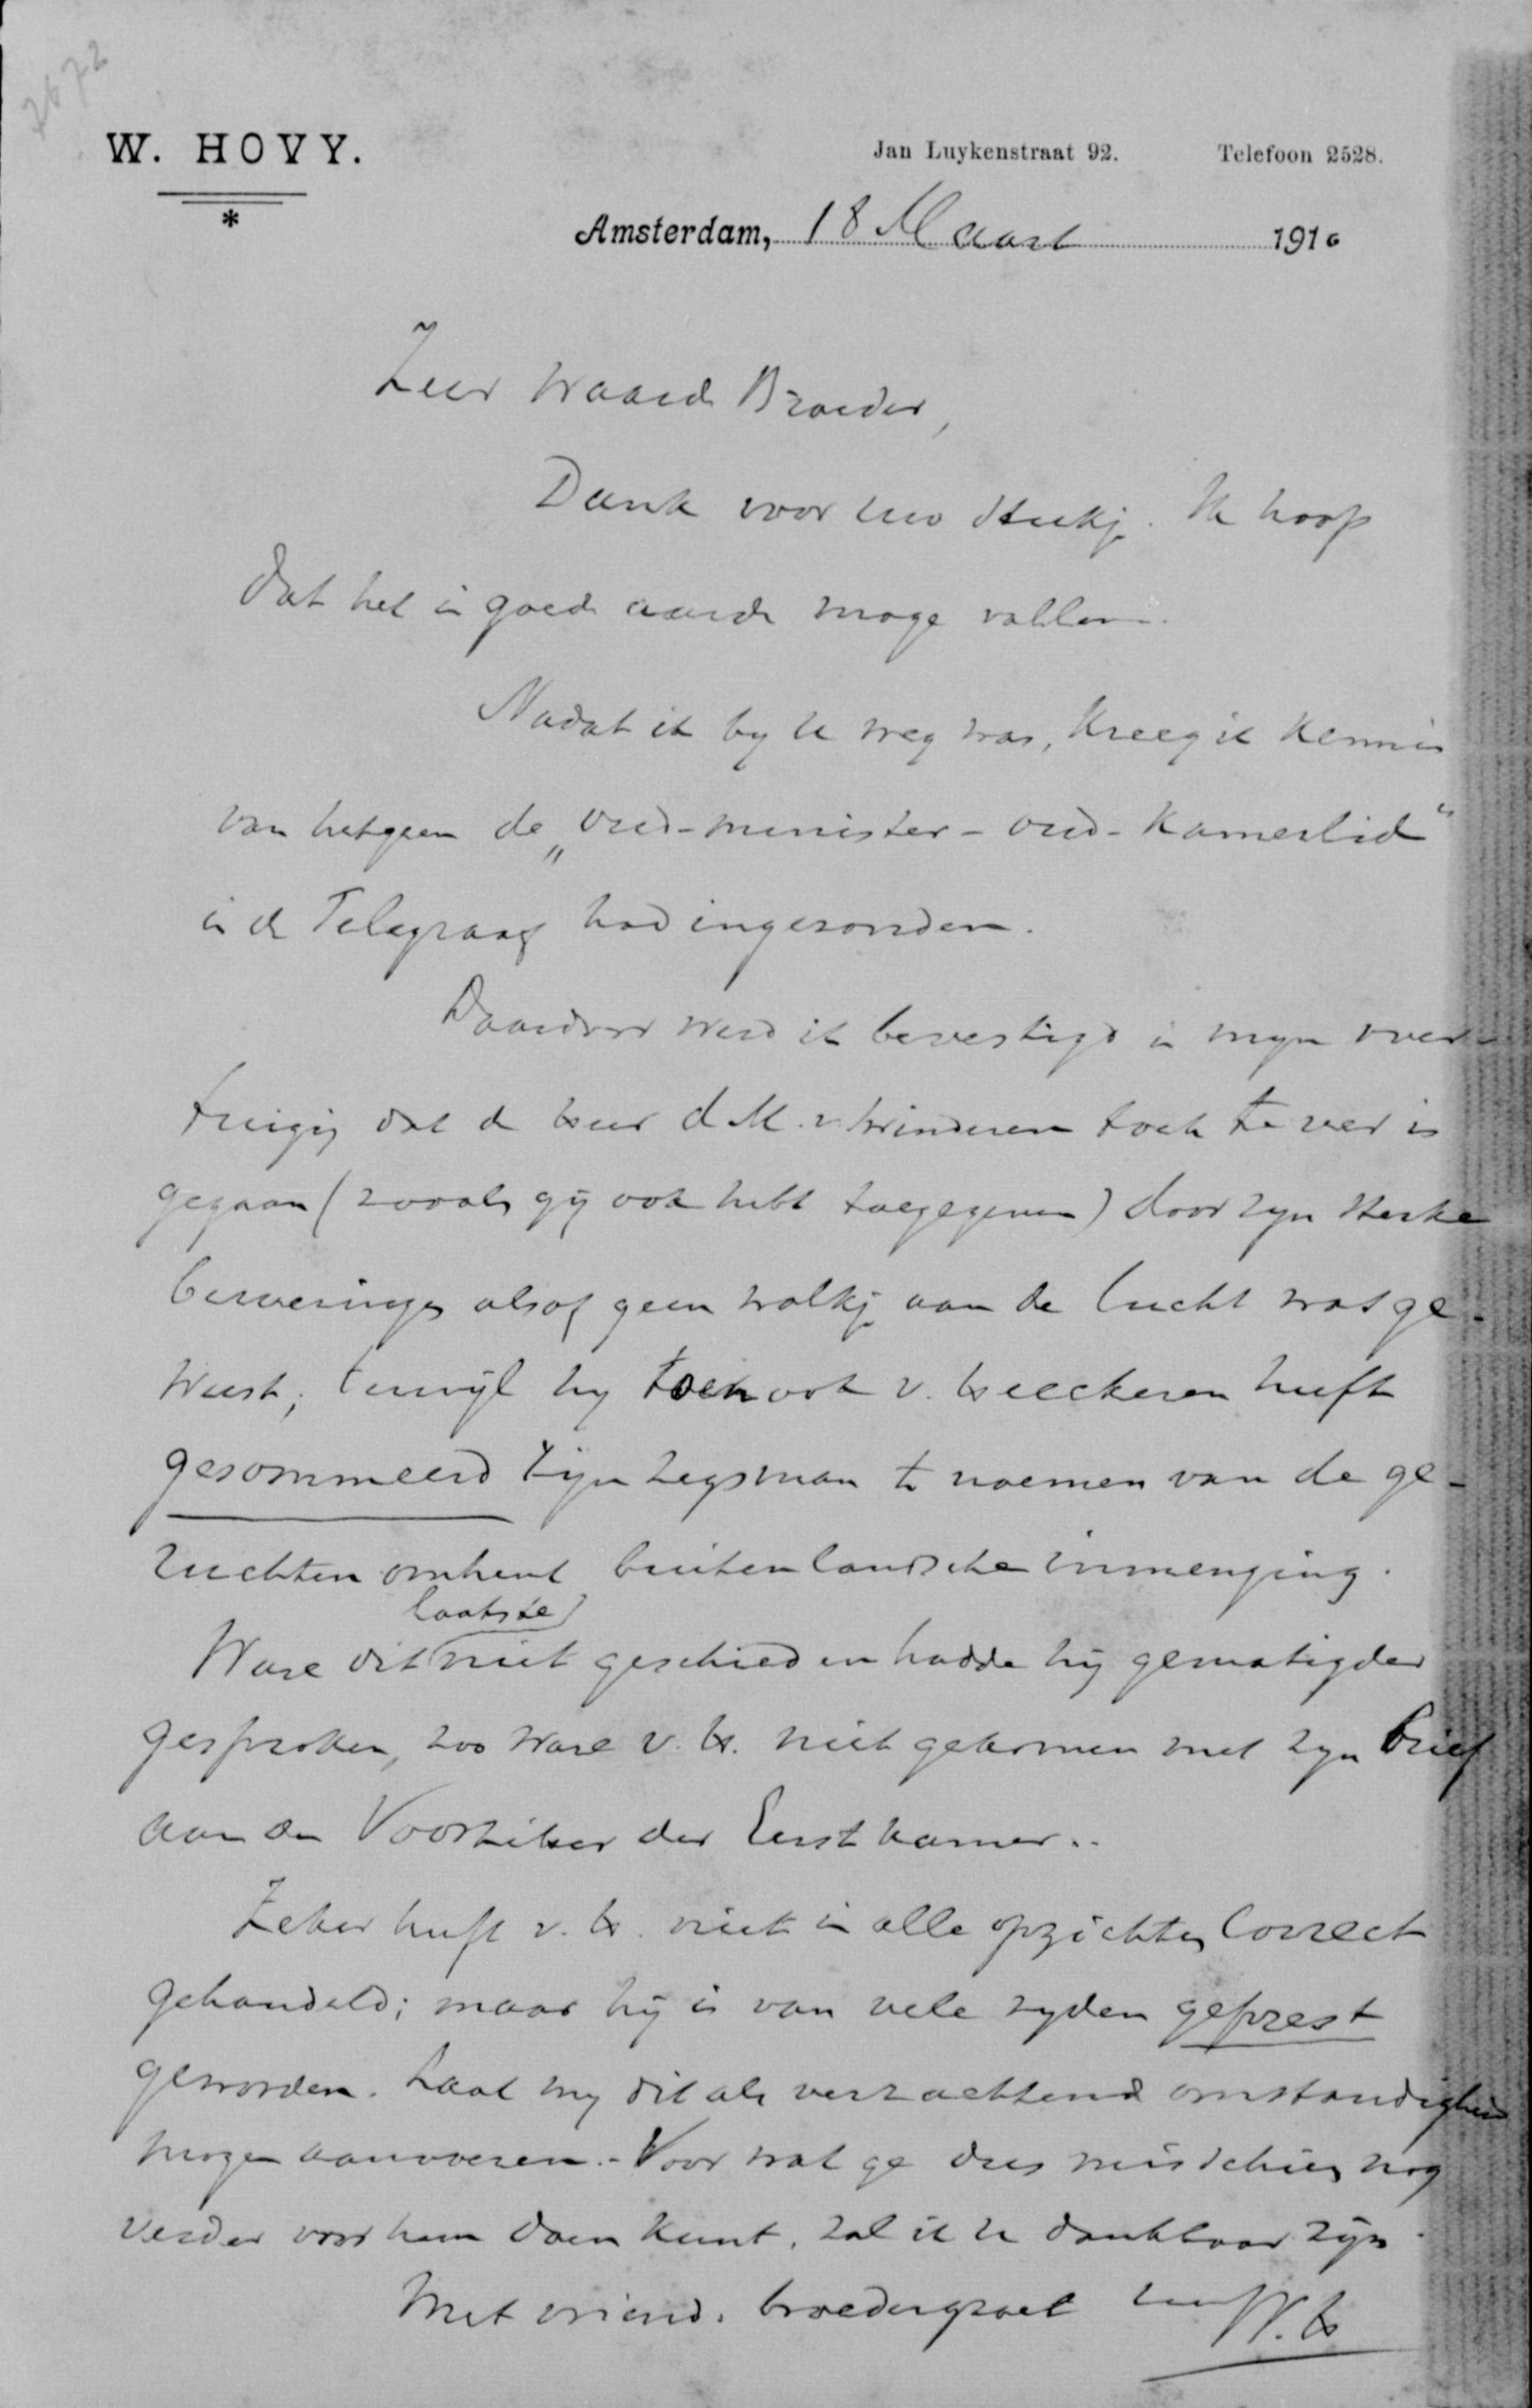 2672
W. HOVY.
*
Jan Luykenstraat 92. Telefoon 2528.
Amsterdam, 18 Maart 1910
Zeer Waarde Broeder,
Dank voor uw stukje. Ik hoop
dat het in goede aarde moge vallen.
Nadat ik by U weg was, kreeg ik kennis
van hetgeen de „oud-minister-oud-Kamerlid“
in de Telegraaf had ingezonden.
Daardoor werd ik bevestigd in myn over-
tuiging dat de Heer d. M. v. Swinderen toch te ver is
gegaan (zooals gij ook hebt toegegeven) door zyn sterke
beweringen alsof geen wolkje aan de lucht was ge-
weest; terwijl hy toch ook v. Heeckeren heeft
gesommeerd zijn zegsman te noemen van de ge-
ruchten omtrent buitenlandsche inmenging.
Ware dit laatste niet geschied en hadde hij gematigder
gesproken, zoo ware v. H. niet gekomen met zyn brief
aan den Voorzitter der Eerste Kamer..
Zeker heeft v. H. niet in alle opzichten correct
gehandeld; maar hij is van vele zyden geprest
geworden. Laat my dit als verzachtende omstandigheid
mogen aanvoeren. - Voor wat ge dus misschien nog
verder voor hem doen kunt, zal ik U dankbaar zijn.
Met vriend. broedergroet uw W. H